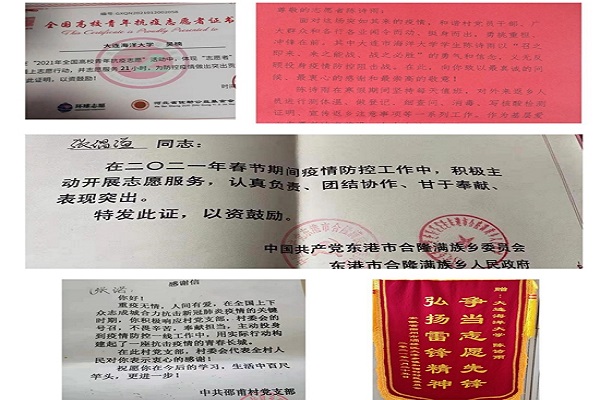 全国高校青年抗疫志愿者证书
This Certificate is Proudly Presented to
大连海洋大学 吴楠
"2021年全国高校青年抗疫志愿"活动中，体现"志愿者"
志愿服务21小时，为防疫
此证明，以资鼓励！
环球志愿
尊敬的志愿者陈诗雨：
大众和各行各业闻令而动，挺身而出，勇毅重担，
冲锋在前，其中大连市大连海洋大学学生陈诗雨以"召之
反顾投身疫情防控阻击战。在此，向你致以最真诚的问
候、最衷心的感谢和最崇高的敬意！
陈诗雨在寒假期间坚持每天值班，对外来返乡人
员进行测体温、做登记、细查问、消毒、写核酸检测
证明，宣传返乡注意事项等一系列工作，作为基层
张倡谊 同志：
在二〇二一年春节期间疫情防控工作中，积极主
动开展志愿服务，认真负责、团结协作、甘于奉献、
表现突出。
特发此证，以资鼓励。
中国共产党东港市合隆满族乡委员会
东港市合隆满族乡人民政府
感谢信
张诺：
你好！
重疫无情，人间有爱，在全国上下
众志成城合力抗击新冠肺炎疫情的关键
时期，你积极响应村党支部，村委会的
号召，不畏辛苦，奉献担当，主动投身
到疫情防控一线工作中，用实际行动构
建起了一座抗击疫情的青春长城。
在此村党支部，村委会代表全村人
民对你表示衷心的感谢！
祝愿你在今后的学习，生活中百尺
竿头，更进一步！
中共邵甫村党支部
赠：大连海洋大学 陈诗雨
争当志愿先锋
弘扬雷锋精神